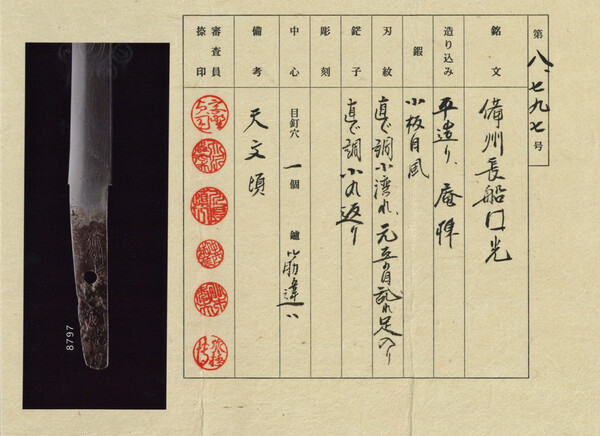 第八、七九七号
銘文 備州長船□光
造り込み 平造り、庵棟
鍜 小板目風
刃紋 直ぐ調小湾れ、元互の目乱れ足入り
鋩子 直ぐ調小丸返り
彫刻
中心 目釘穴 一個 鑢 筋違い
備考 天文頃
審査員
捺印
8797